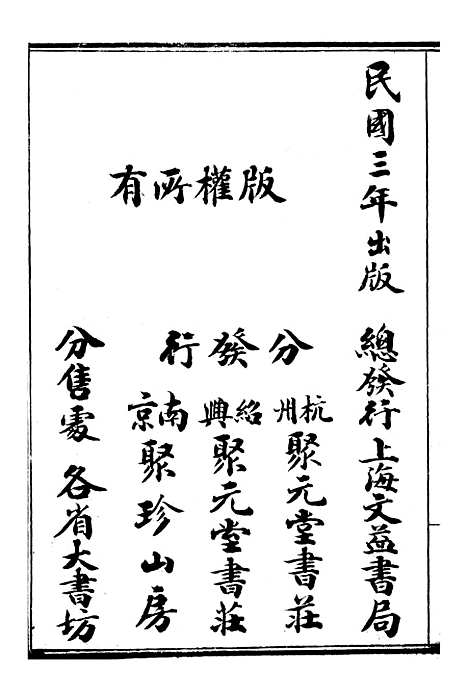 民國三年出版
總發行上海文益書局
版權所有
分發行
杭州聚元堂書莊
紹興聚元堂書莊
南京聚珍山房
分售處各省大書坊